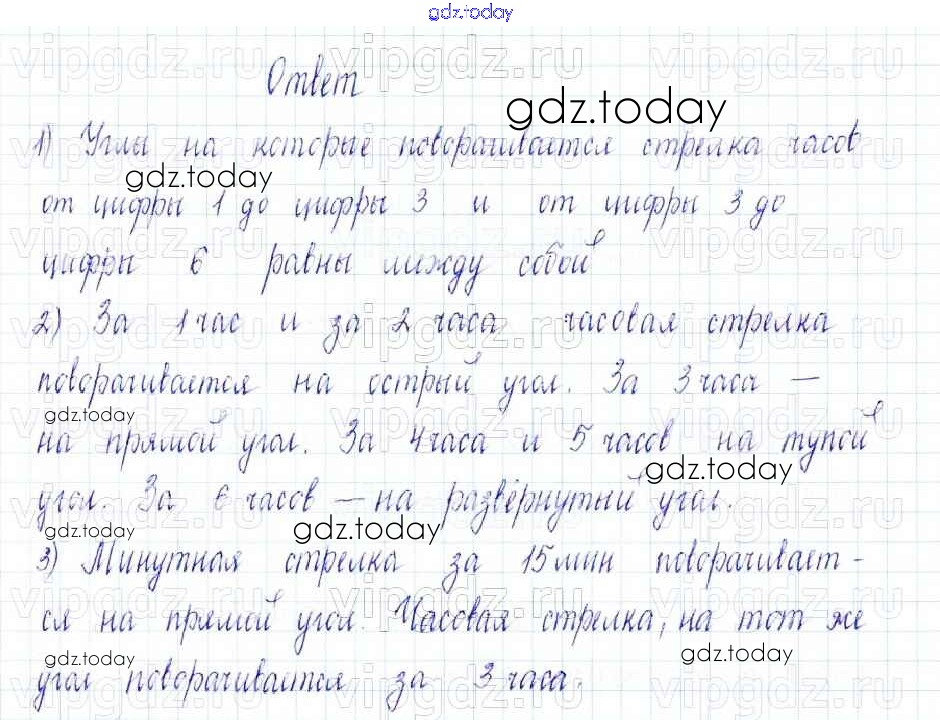 gdz.today
Ответ
gdz.today
1) Углы на которые поворачивается стрелка часов
gdz.today
от цифры 1 до цифры 3 и от цифры 3 до
цифры 6 равны между собой
2) За 1 час и за 2 часа часовая стрелка
поворачивается на острый угол. За 3 часа —
gdz.today
на прямой угол. За 4 часа и 5 часов на тупой
gdz.today
угол. За 6 часов — на развёрнутый угол.
gdz.today
gdz.today
3) Минутная стрелка за 15 мин поворачивает-
ся на прямой угол. Часовая стрелка, на тот же
gdz.today
gdz.today
угол поворачивается за 3 часа.
vipgdz.ru